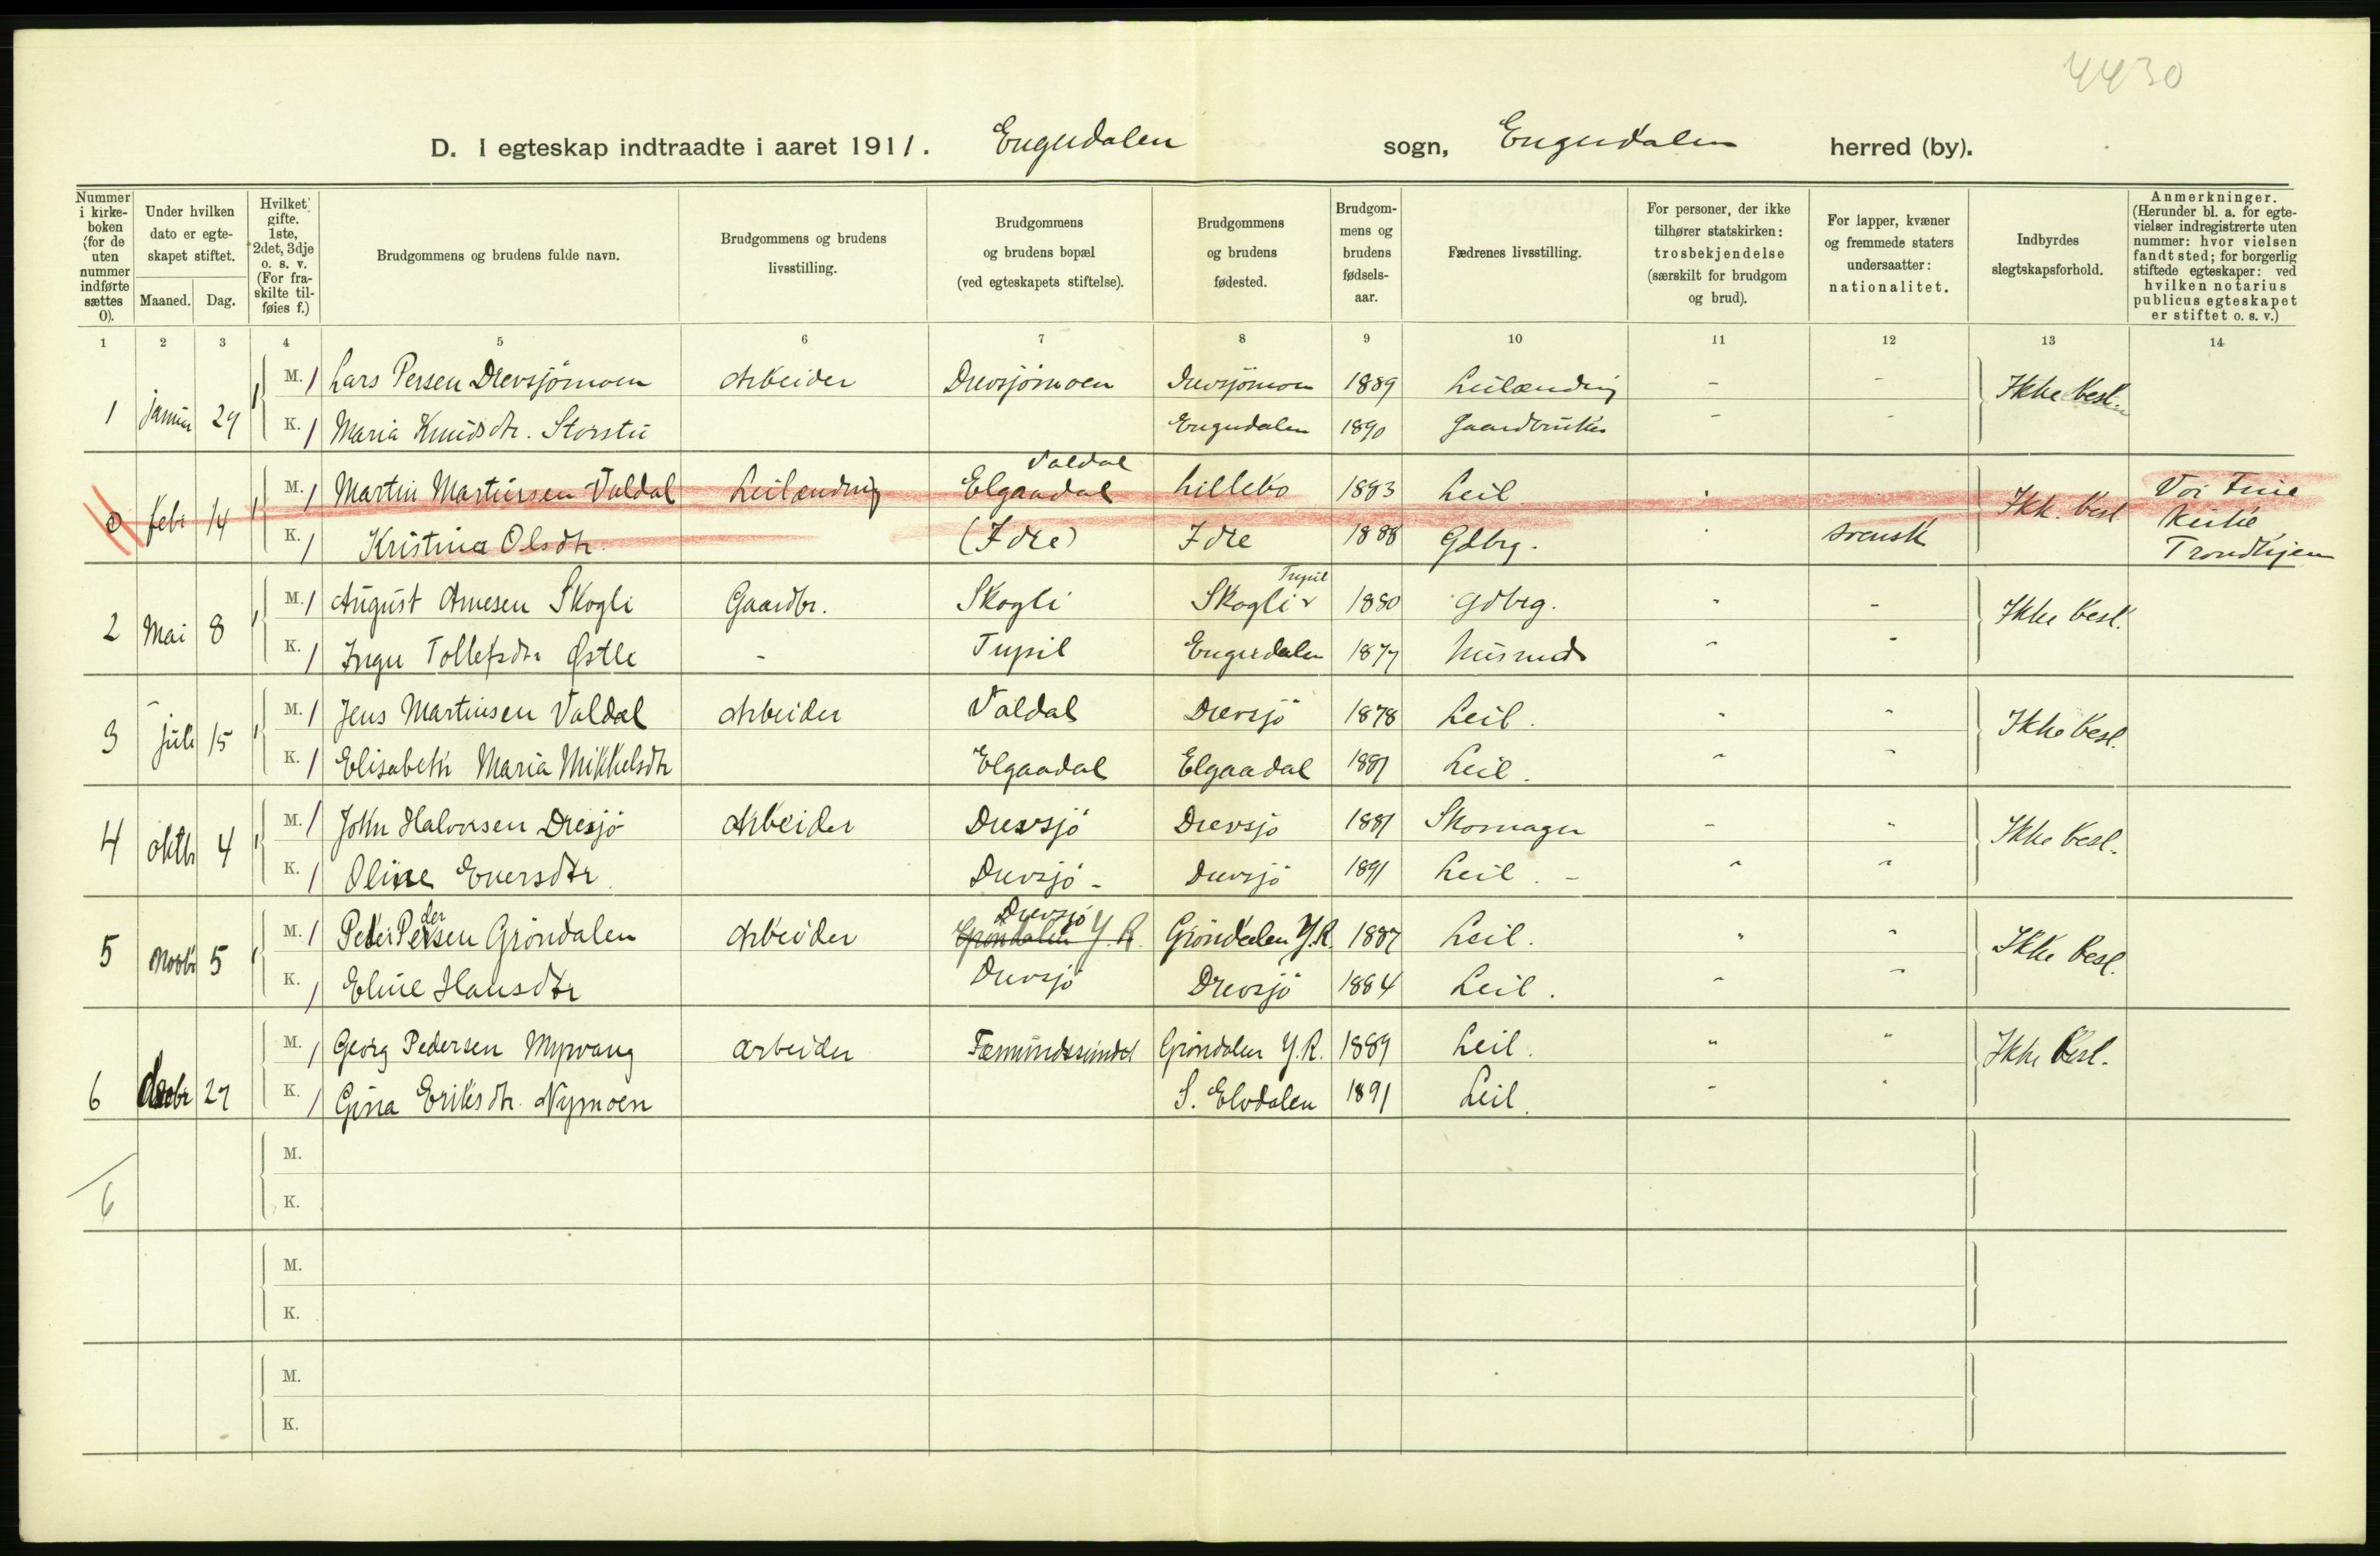 4430
D. I egteskap indtraadte i aaret 1911. Engerdalen sogn, Engerdalen herred (by).
Nummer i kirke- boken (for de uten nummer indførte sættes 0).
Under hvilken dato er egte- skapet stiftet.
Maaned. Dag.
Hvilket gifte. 1ste, 2det, 3dje o. s. v. (For fra- skilte til- føies f.)
Brudgommens og brudens fulde navn.
Brudgommens og brudens livsstilling.
Brudgommens og brudens bopæl (ved egteskapets stiftelse).
Brudgommens og brudens fødested.
Brudgom- mens og brudens fødsels- aar.
Fædrenes livsstilling.
For personer, der ikke tilhører statskirken: trosbekjendelse (særskilt for brudgom og brud).
For lapper, kvæner og fremmede staters undersaatter: nationalitet.
Indbyrdes slegtskapsforhold.
Anmerkninger. (Herunder bl. a. for egte- vielser indregistrerte uten nummer: hvor vielsen fandt sted; for borgerlig stiftede egteskaper: ved hvilken notarius publicus egteskapet er stiftet o. s. v.)
1 2 3 4 5 6 7 8 9 10 11 12 13 14
M. 1 Lars Persen Drevsjömoen Arbeider Drevsjömoen Drevsjömoen 1889 Leilænding - -
1 januar 29 1 Ikke besl.
K. 1 Maria Knudsdtr. Storstu Engerdalen 1890 Gaardbruker - -
Valdal
M. 1 Martin Martinsen Valdal Leilænding Elgaadal Lillebo 1883 Leil Vor Frue
0 febr 14 1 Ikk. besl Kirke
K. 1 Kristina Olsdtr. (Idre) Idre 1888 Gdbrg. svensk Trondhjem
Trysil
M. 1 August Arnesen Skogli Gaardbr. Skogli Skogli 1880 Gdbrg. - -
2 Mai 8 1 Ikke besl.
K. 1 Inger Tollefsdtr Østle - Trysil Engerdalen 1877 Husmand - -
M. 1 Jens Martinsen Valdal Arbeider Valdal Drevsjö 1878 Leil. - -
3 juli 15 1 Ikke besl.
K. 1 Elisabeth Maria Mikkelsdtr Elgaadal Elgaadal 1881 Leil. - -
M. 1 John Halvorsen Dresjö Arbeider Drevsjö Drevsjö 1881 Skomager - -
4 oktbr 4 1 Ikke besl.
K. 1 Oline Eversdtr. Drevsjö - Drevsjö 1891 Leil. - - -
der Drevsjö
M. 1 Peder Persen Gröndalen Arbeider Gröndalen Y. R. Gröndalen Y.R. 1887 Leil. - -
5 Novbr 5 1 Ikke besl.
K. 1 Eline Hansdtr Drevsjö Drevsjö 1884 Leil. - -
M. 1 Georg Pedersen Myrvang arbeider Fæmundssundet Gröndalen Y.R. 1889 Leil. " "
Ikke besl.
6 Decbr 27
K. 1 Gina Eriksdtr. Nymoen S. Elvdalen 1891 Leil. - -
M.
6
K.
M.
K.
M.
K.